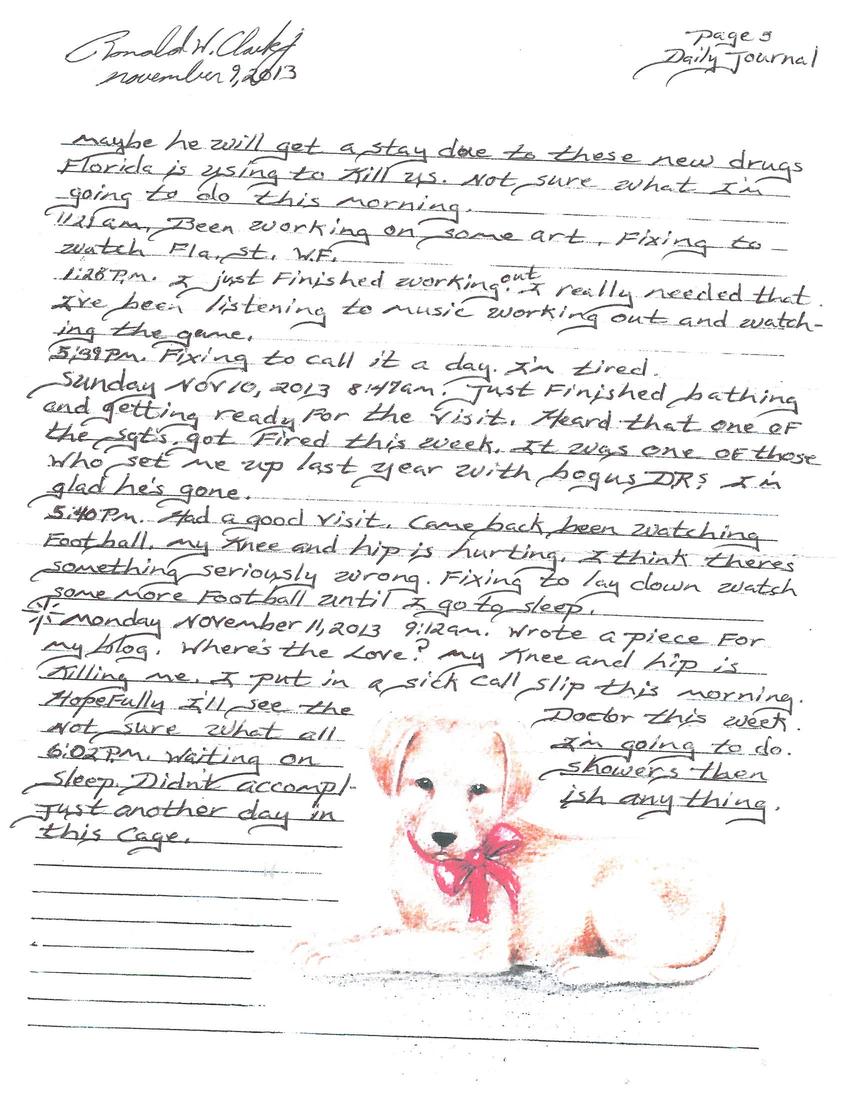 Ronald W. Clark Jr
November 9, 2013
Page 5
Daily Journal
maybe he will get a stay due to these new drugs
Florida is using to kill us. Not sure what I'm
going to do this morning.
11:21am. Been working on some art. Fixing to
watch Fla. St. W.F.
1:28P.m. I just Finished working out. I really needed that.
I've been listening to music working out and watch-
ing the game.
5:39Pm. Fixing to call it a day. I'm tired.
Sunday Nov 10, 2013 8:47am. Just Finished bathing
and getting ready For the visit. Heard that one of
the sgt's got Fired this week. It was one of those
who set me up last year with bogus DRs I'm
glad he's gone.
5:40Pm. Had a good visit. Came back, been watching
Football. my Knee and hip is hurting. I think there's
something seriously wrong. Fixing to lay down watch
some more Football until I go to sleep.
Monday November 11, 2013 9:12am. Wrote a piece For
my blog. Where's the Love? my Knee and hip is
Killing me. I put in a sick call slip this morning.
HopeFully I'll see the Doctor this week.
Not sure what all I'm going to do.
6:02P.m. Waiting on showers then
sleep. Didn't accompl- ish any thing.
Just another day in
this Cage.